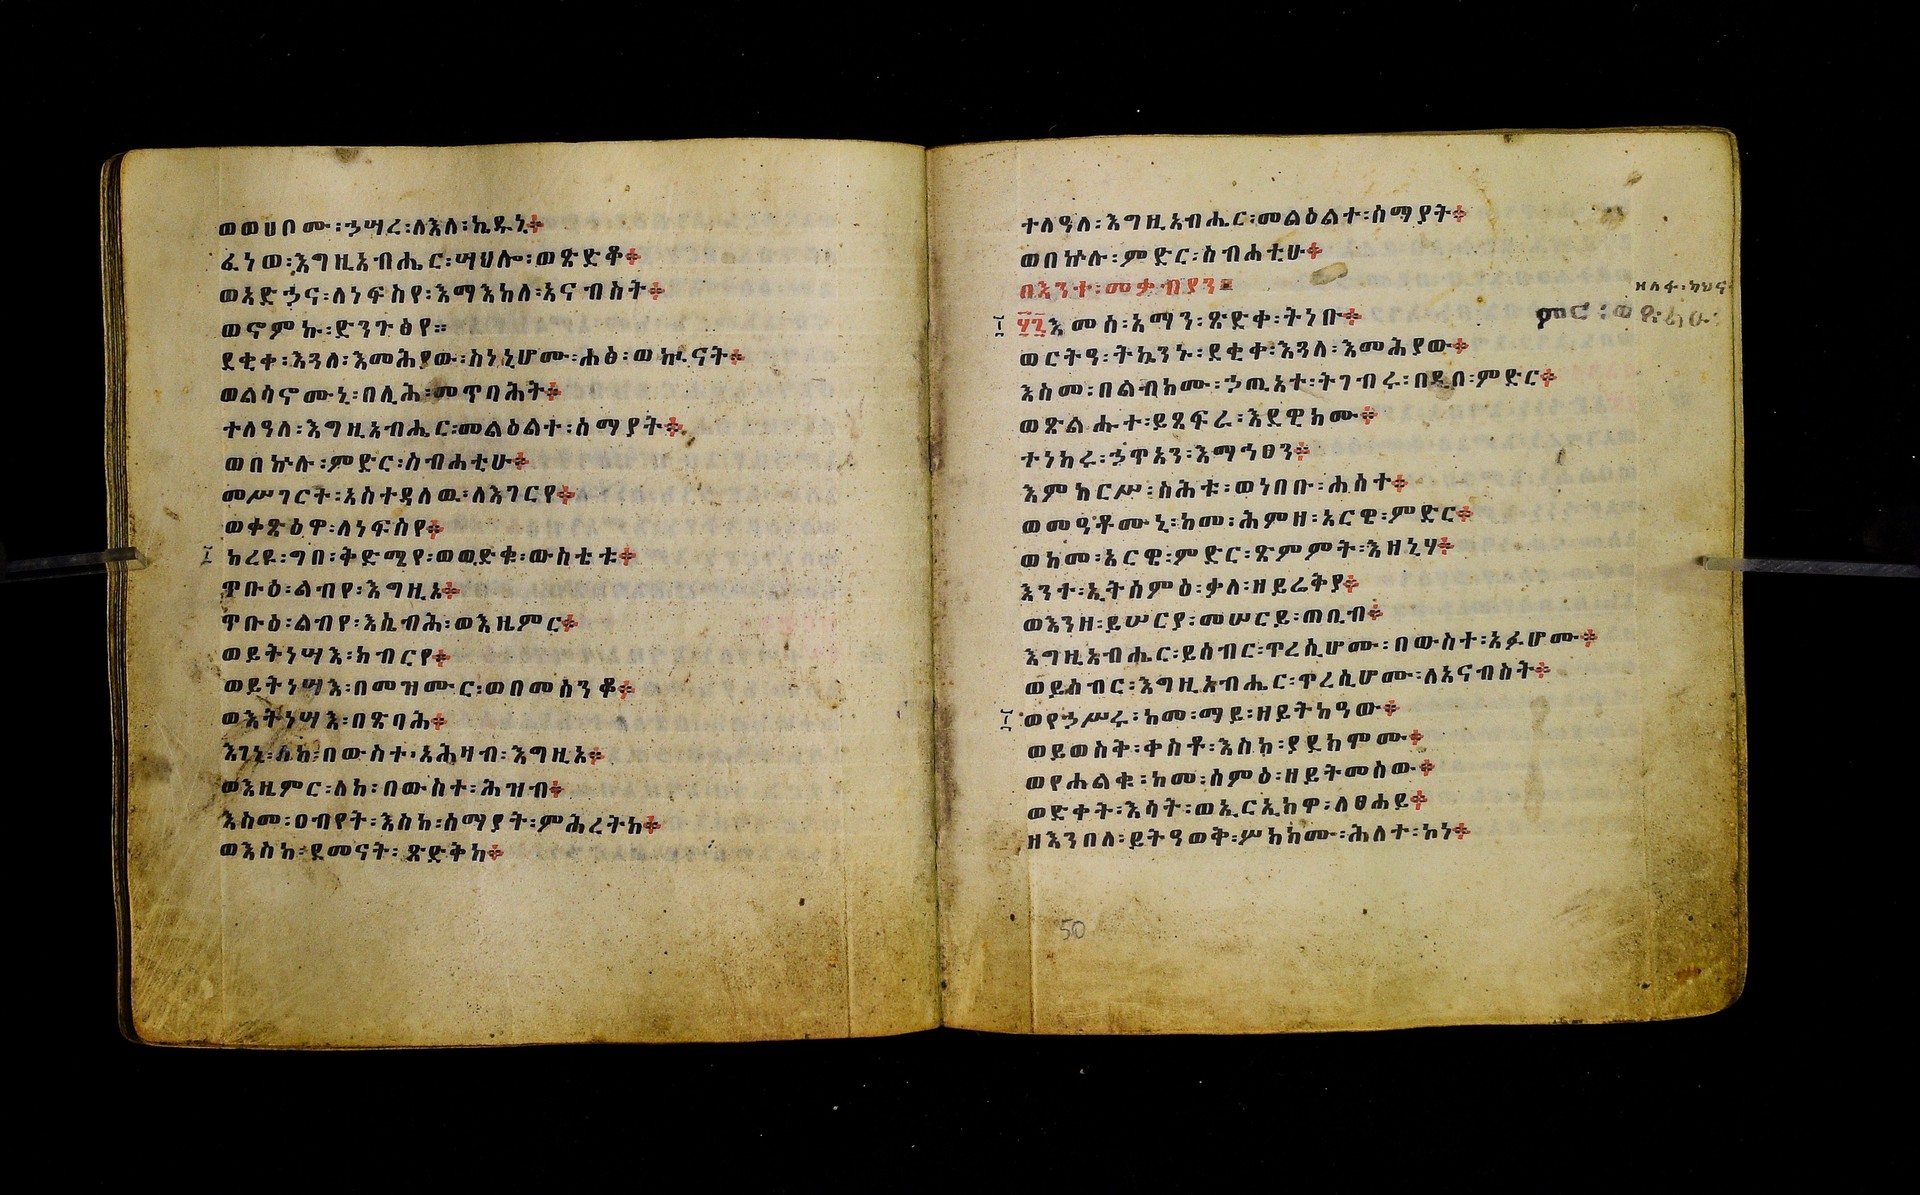 ወወሀቦሙ፡ኃሣረ፡ለእለ፡ኬዱኒ፨
ፈነወ፡እግዚአብሔር፡ሣህሎ፡ወጽድቆ፨
ወአድኃና፡ለነፍስየ፡እማእከለ፡አናብስት፨
ወኖምኩ፡ድንጉፅየ።
ደቂቀ፡እጓለ፡እመሕያው፡ስነኒሆሙ፡ሐፅ፡ወኲናት፨
ወልሳኖሙኒ፡በሊሕ፡መጥባሕት፨
ተለዓለ፡እግዚአብሔር፡መልዕልተ፡ሰማያት፨
ወበኵሉ፡ምድር፡ስብሐቲሁ፨
መሥገርት፡አስተዳለዉ፡ለእገርየ፨
ወቀጽዕዋ፡ለነፍስየ፨
ከረዩ፡ግበ፡ቅድሜየ፡ወወድቁ፡ውስቴቱ፨
ጥቡዕ፡ልብየ፡እግዚአ፨
ጥቡዕ፡ልብየ፡እሴብሕ፡ወእዜምር፨
ወይትነሣእ፡ክብርየ፨
ወይትነሣእ፡በመዝሙር፡ወበመሰንቆ፨
ወእትነሣእ፡በጽባሕ፨
እገኒ፡ለከ፡በውስተ፡አሕዛብ፡እግዚአ፨
ወእዜምር፡ለከ፡በውስተ፡ሕዝብ፨
እስመ፡ዐብየት፡እስከ፡ሰማያት፡ምሕረትከ፨
ወእስከ፡ደመናት፡ጽድቅከ፨
ተለዓለ፡እግዚአብሔር፡መልዕልተ፡ሰማያት፨
ወበኵሉ፡ምድር፡ስብሐቲሁ፨
በእንተ፡መቃብያን።
፶፯እመሰ፡አማን፡ጽድቀ፡ትነቡ፨
ወርትዓ፡ትኴንኑ፡ደቂቀ፡እጓለ፡እመሕያው፨
እስመ፡በልብክሙ፡ኃጢአተ፡ትገብሩ፡በዲበ፡ምድር፨
ወጽልሑተ፡ይጸፍራ፡እደዊክሙ፨
ተነከሩ፡ኃጥአን፡እማኅፀን፨
እምከርሥ፡ስሕቱ፡ወነበቡ፡ሐሰተ፨
ወመዓቶሙኒ፡ከመ፡ሕምዘ፡አርዌ፡ምድር፨
ወከመ፡አርዌ፡ምድር፡ጽምምት፡እዘኒሃ፨
እንተ፡ኢትሰምዕ፡ቃለ፡ዘይሬቅያ፨
ወእንዘ፡ይሠርያ፡መሠርይ፡ጠቢብ፨
እግዚአብሔር፡ይሰብር፡ጥረሲሆሙ፡በውስተ፡አፉሆሙ፨
ወይሰብር፡እግዚአብሔር፡ጥረሲሆሙ፡ለአናብስት፨
ወየኃሥሩ፡ከመ፡ማይ፡ዘይትከዓው፨
ወይወስቅ፡ቀስቶ፡እስከ፡ያደክሞሙ፨
ወየሐልቁ፡ከመ፡ሰምዕ፡ዘይትመሰው፨
ወድቀት፡እሳት፡ወኢርኢክዋ፡ለፀሐይ፨
ዘእንበለ፡ይትዓወቅ፡ሦክክሙ፡ሕለተ፡ኮነ፨
50